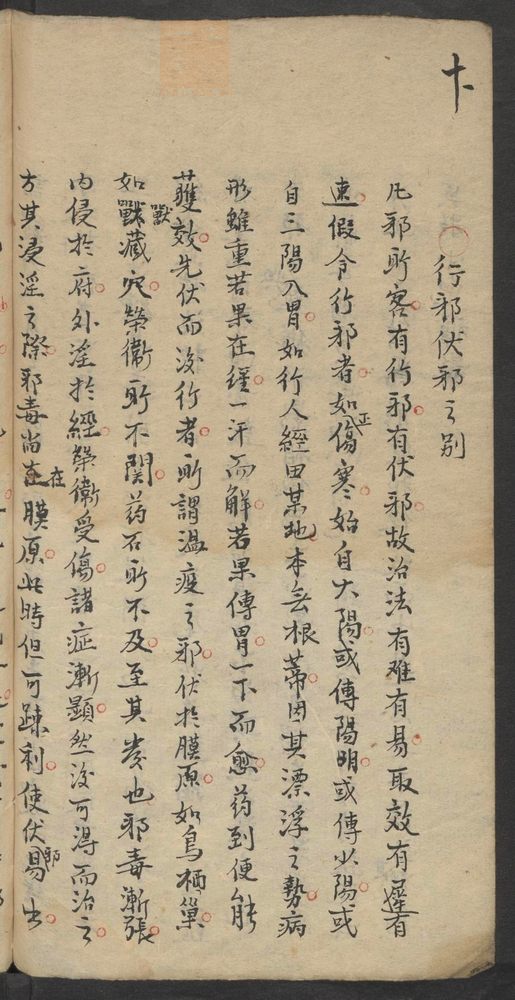 卞
行邪伏邪之別
凡邪所客有行邪有伏邪故治法有难有易取效有遲有
速假令行邪者如正傷寒始自太陽或傳陽明或傳少陽或
自三陽入胃如行人經由某地本無根蒂因其漂浮之勢病
形雖重若果在經一汗而解若果傳胃一下而愈药到便能
獲效先伏而後行者所謂溫疫之邪伏於膜原如鳥栖巢
如獸藏穴榮衛所不関药石所不及至其發也邪毒漸張
內侵於府外淫於經榮衛受傷諸症漸顯然後可得而治之
方其浸淫之際邪毒尚在膜原此時但可疎利使伏邪易出